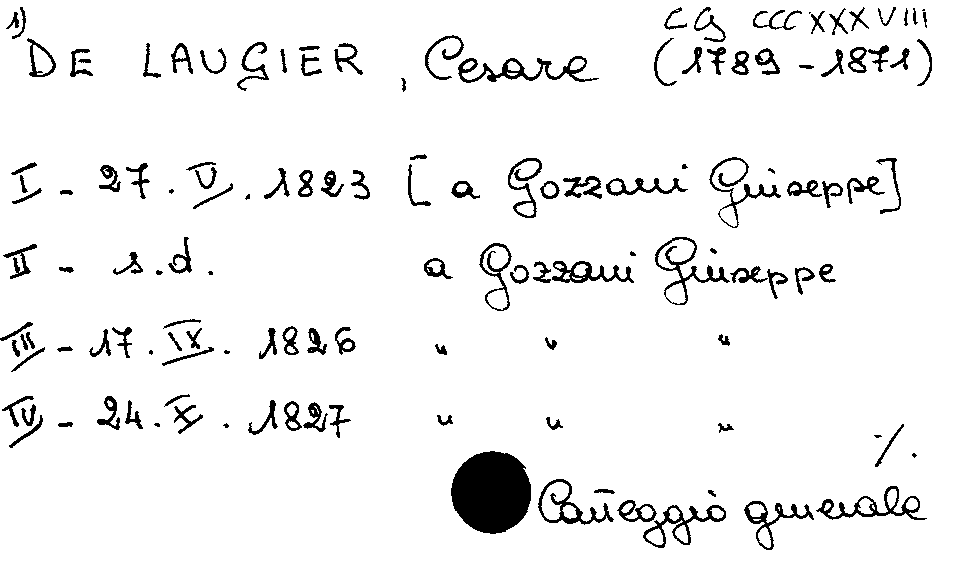 1) CG CCCXXXVIII
DE LAUGIER, Cesare (1789-1871)
I - 27.V.1823 [a Gozzani Giuseppe]
II - s.d. a Gozzani Giuseppe
III - 17.IX.1826 " " "
IV - 24.X.1827 " " "
./.
Carteggio generale